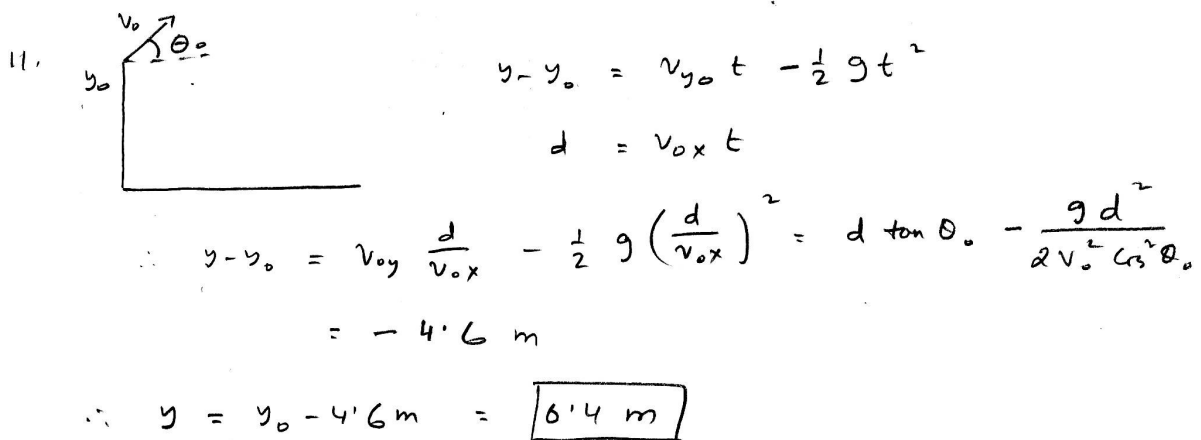 11.
v₀
θ₀
y₀
y - y₀ = v_y₀ t - ½ g t²
d = v₀ₓ t
∴ y - y₀ = v₀y d/v₀ₓ - ½ g (d/v₀ₓ)² = d tan θ₀ - g d² / 2 v₀² cos² θ₀
= - 4.6 m
∴ y = y₀ - 4.6 m = 6.4 m